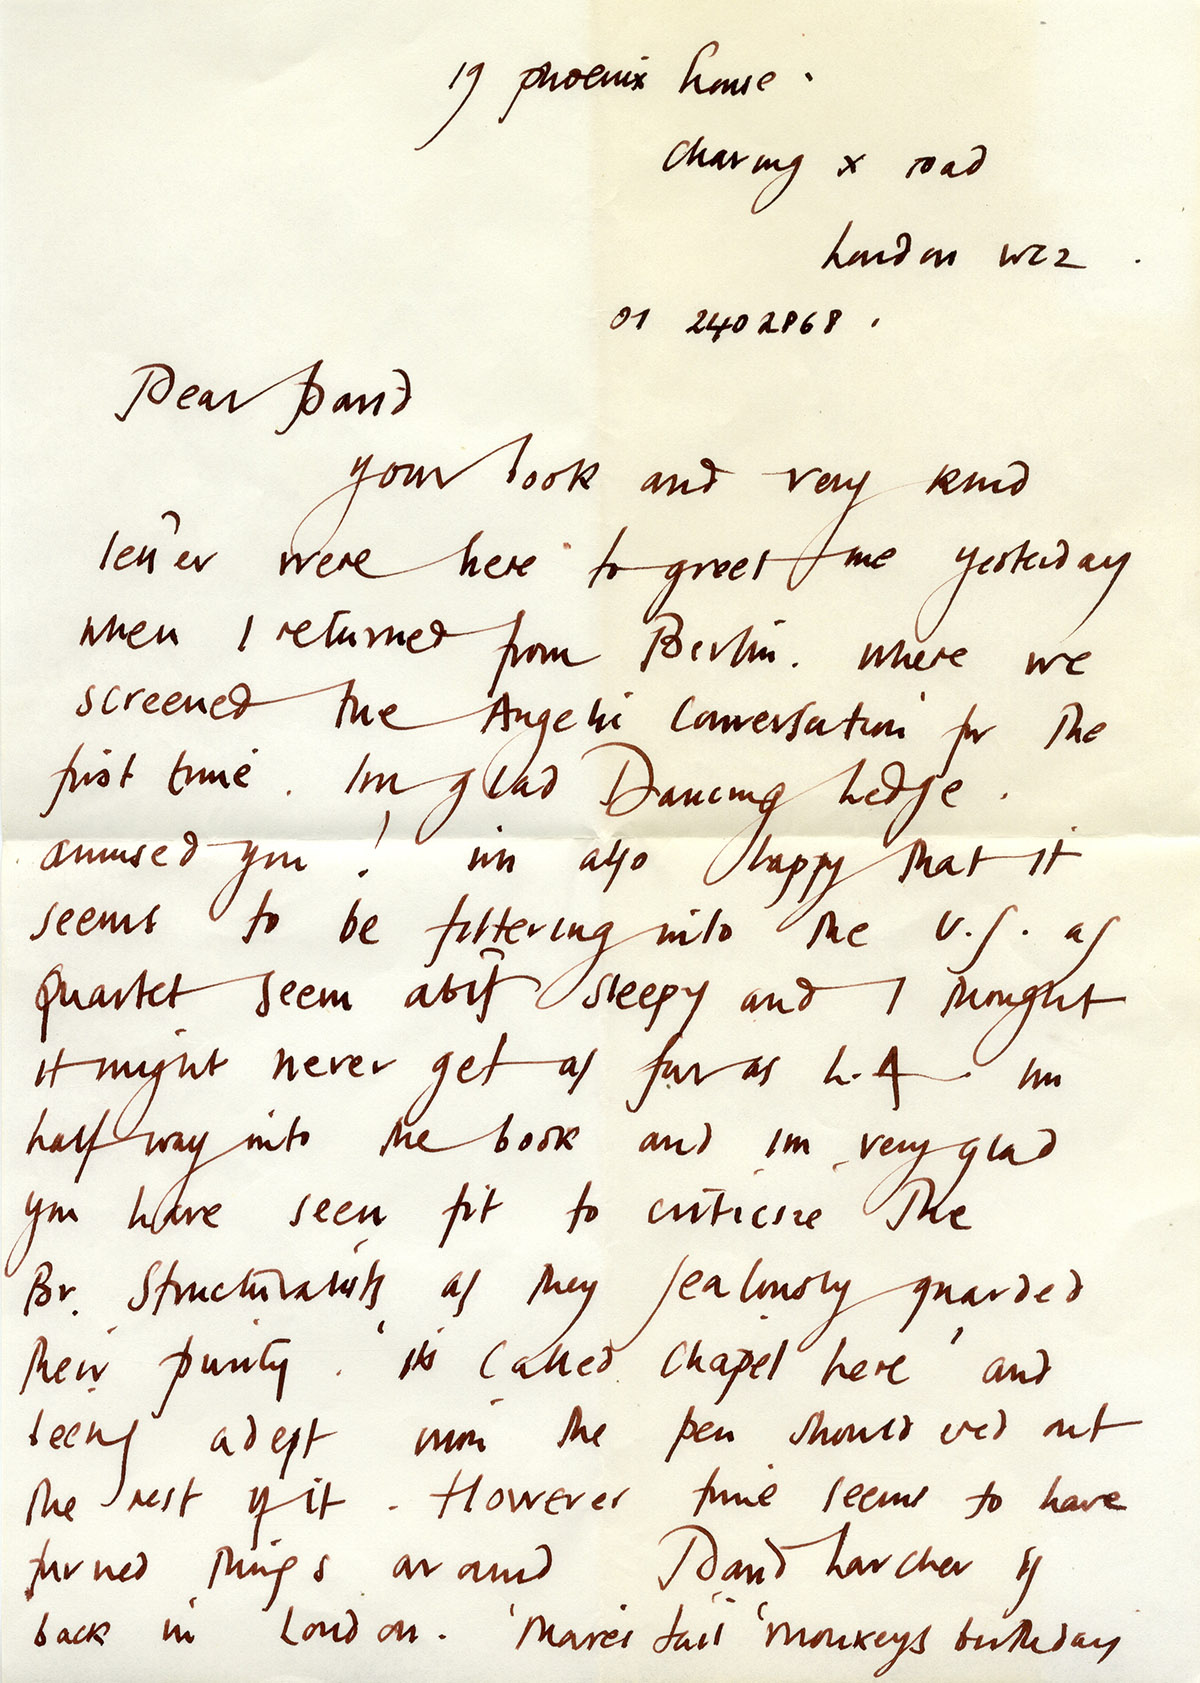 19 phoenix house.
Charing x road
London WC2.
01 2402868.
Dear David
your book and very kind
letter were here to greet me yesterday
when I returned from Berlin. where we
screened the Angelic Conversation for the
first time. Im glad Dancing Ledge.
amused you! im also happy that it
seems to be filtering into the U.S. as
Quartet seem abit sleepy and I thought
it might never get as far as L.A. Im
half way into the book and im very glad
you have seen fit to criticise the
Br. Structuralists as they jealously guarded
their purity. 'its called chapel here' and
being adept with the pen shouldered out
the rest of it. However time seems to have
turned things around David Larcher is
back in London. 'Mares tail' Monkeys birthday